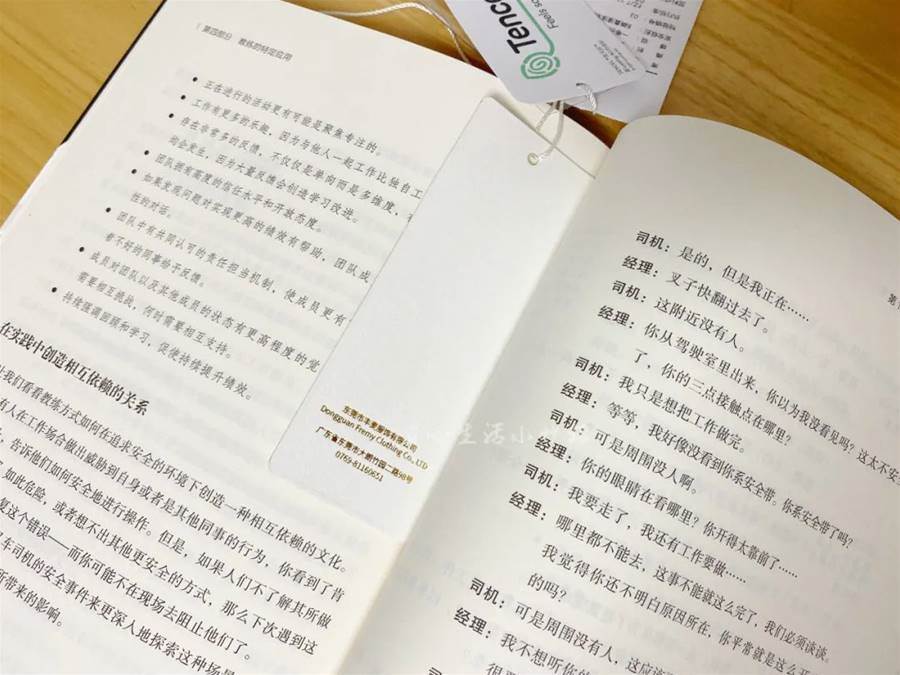 第四部分 教练的特定应用
● 正在进行的活动更有可能是聚焦专注的。
● 工作有更多的乐趣，因为与他人一起工作比独自工
● 存在非常多的反馈，不仅仅是单向而是多维度，
动会发生，因为大量反馈会创造学习改进。
● 团队拥有高度的信任水平和开放态度。
● 如果发现问题对实现更高的绩效有帮助，团队成
性的对话。
● 团队中有共同认可的责任担当机制，使成员更有
着不好的同事给予反馈。
● 成员对团队以及其他成员的状态有更高程度的觉
需要相互挑战，何时需要相互支持。
● 持续强调回顾和学习，促使持续提升绩效。
在实践中创造相互依赖的关系
让我们看看教练方式如何在追求安全的环境下创造一种相互依赖的文化。
有人在工作场合做出威胁到自身或者是其他同事的行为，你看到了肯
，告诉他们如何安全地进行操作。但是，如果人们不了解其所做
如此危险，或者想不出其他更安全的方式，那么下次遇到这
复这个错误——而你可能不在现场去阻止他们了。
车司机的安全事件来更深入地探索这种场景
所带来的影响。
Tence
Feels so
东莞市丰美服饰有限公司
Dongguan Fremy Clothing Co., LTD
广东省东莞市大朗竹园二路98号
0769-81160651
第
司机：是的，但是我正在……
经理：叉子快翻过去了。
司机：这附近没有人。
经理：你从驾驶室里出来，你以为我没看见吗？这太不安全
了，你的三点接触点在哪里？
司机：我只是想把工作做完。
经理：等等，我好像没看到你系安全带。你系安全带了吗？
司机：可是周围没人啊。
经理：你的眼睛在看哪里？你开得太靠前了……
司机：我要走了，我还有工作要做……
经理：哪里都不能去，这事不能就这么完了，我们必须谈谈。
我觉得你还不明白原因所在，你平常就是这么开
的吗？
司机：可是周围没有人，这应该
经理：我不想听你的
很
司机：